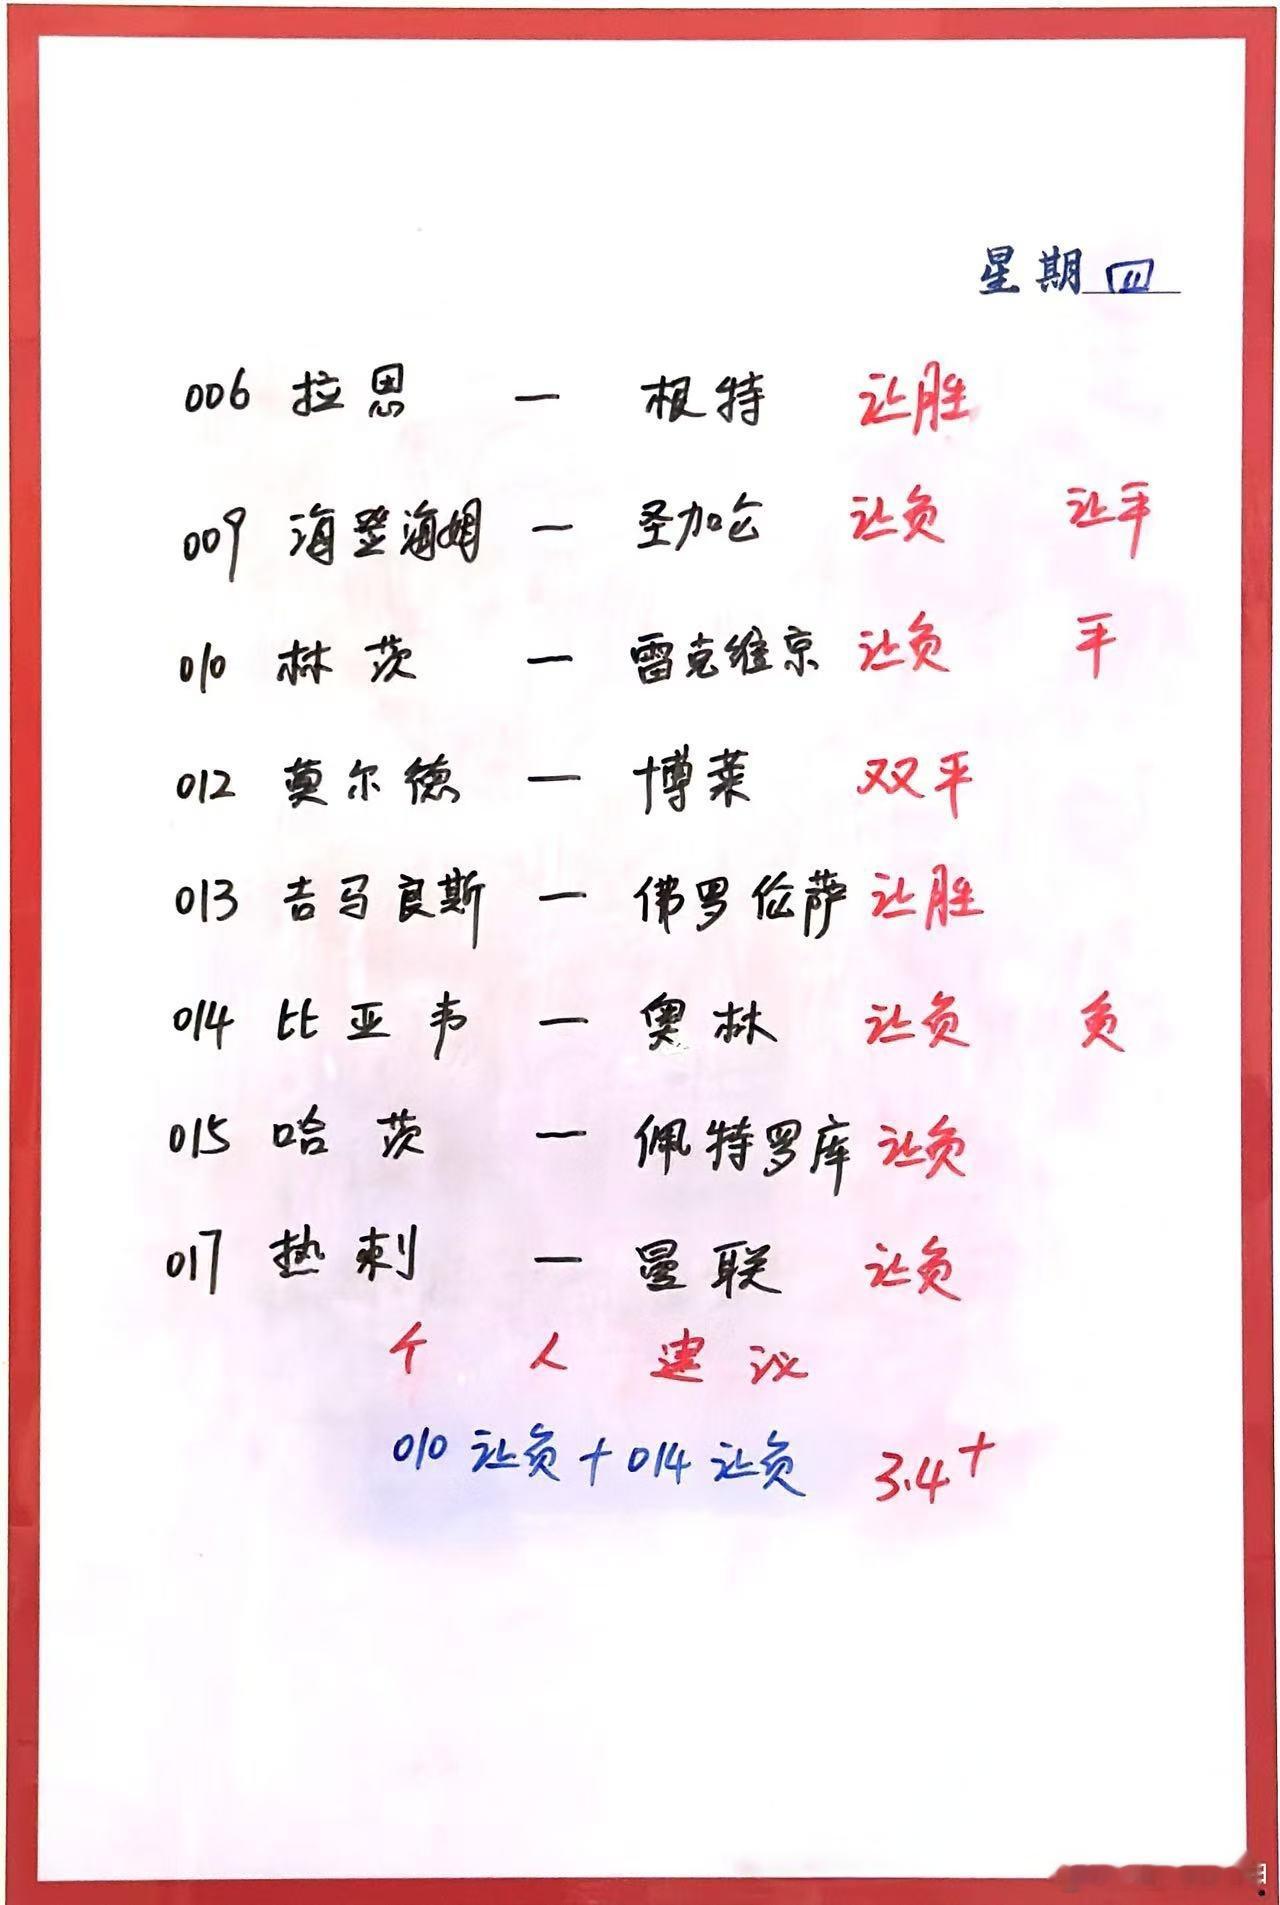 星期四
006 拉恩 — 根特 让胜
009 海登海姆 — 圣加仑 让负 让平
010 林茨 — 雷克维京 让负 平
012 莫尔德 — 博莱 双平
013 吉马良斯 — 佛罗伦萨 让胜
014 比亚韦 — 奥林 让负 负
015 哈茨 — 佩特罗库 让负
017 热刺 — 曼联 让负
个人建议
010 让负 + 014 让负 3.4+